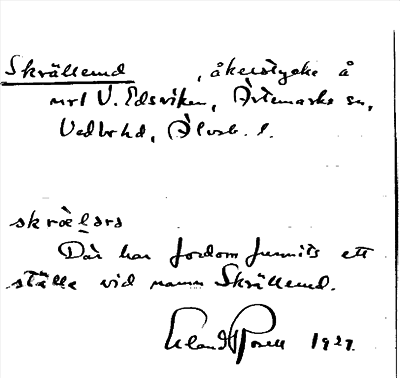 Skrällerud, åkerstycke å
mrl V. Edsviken, Ärtemarks sn,
Vedbo hd, Älvsb. l.
Där har fordom funnits ett
ställe vid namn Skrällerud.
Erland Rosell 1927.